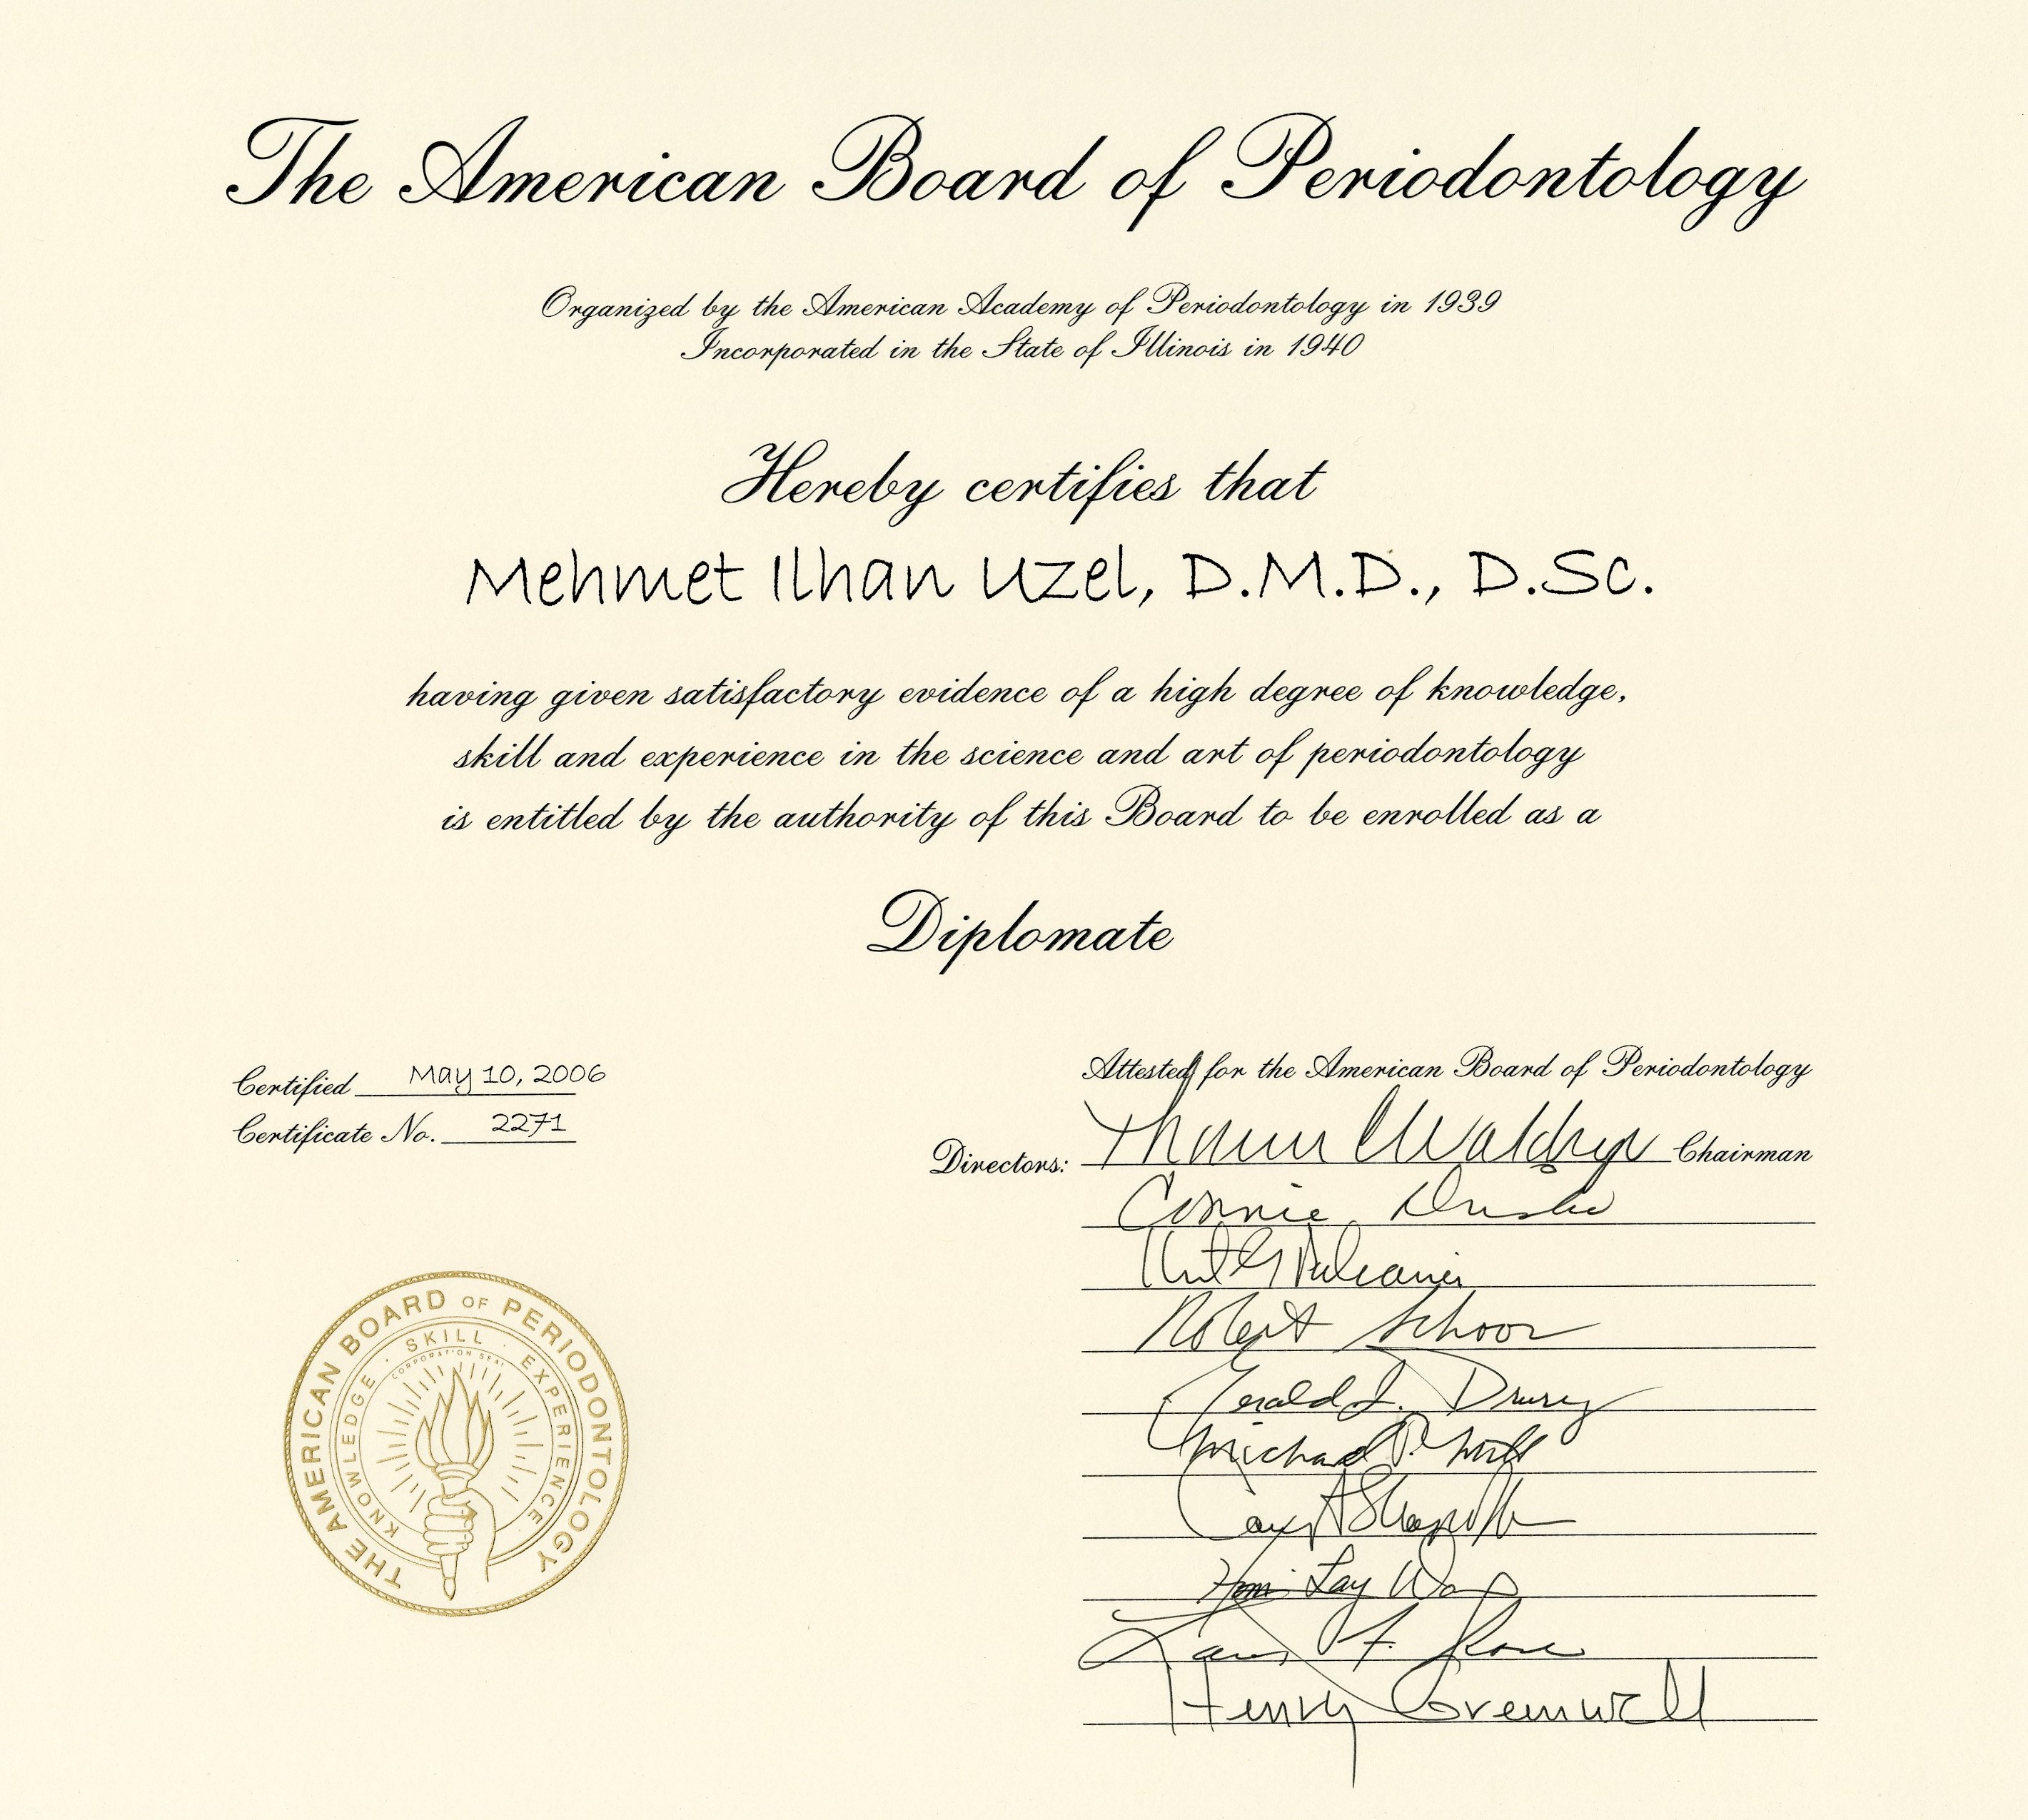 The American Board of Periodontology
Organized by the American Academy of Periodontology in 1939
Incorporated in the State of Illinois in 1940
Hereby certifies that
Mehmet Ilhan Uzel, D.M.D., D.Sc.
having given satisfactory evidence of a high degree of knowledge,
skill and experience in the science and art of periodontology
is entitled by the authority of this Board to be enrolled as a
Diplomate
Certified May 10, 2006
Certificate No. 2271
THE AMERICAN BOARD OF PERIODONTOLOGY
KNOWLEDGE · SKILL · EXPERIENCE
CORPORATION SEAL
Attested for the American Board of Periodontology
Directors: Chairman
Connie
Robert Schoor
Gerald I. Drury
Michael P. Mills
Hom-Lay Wang
Louis F. Rose
Henry Greenwell